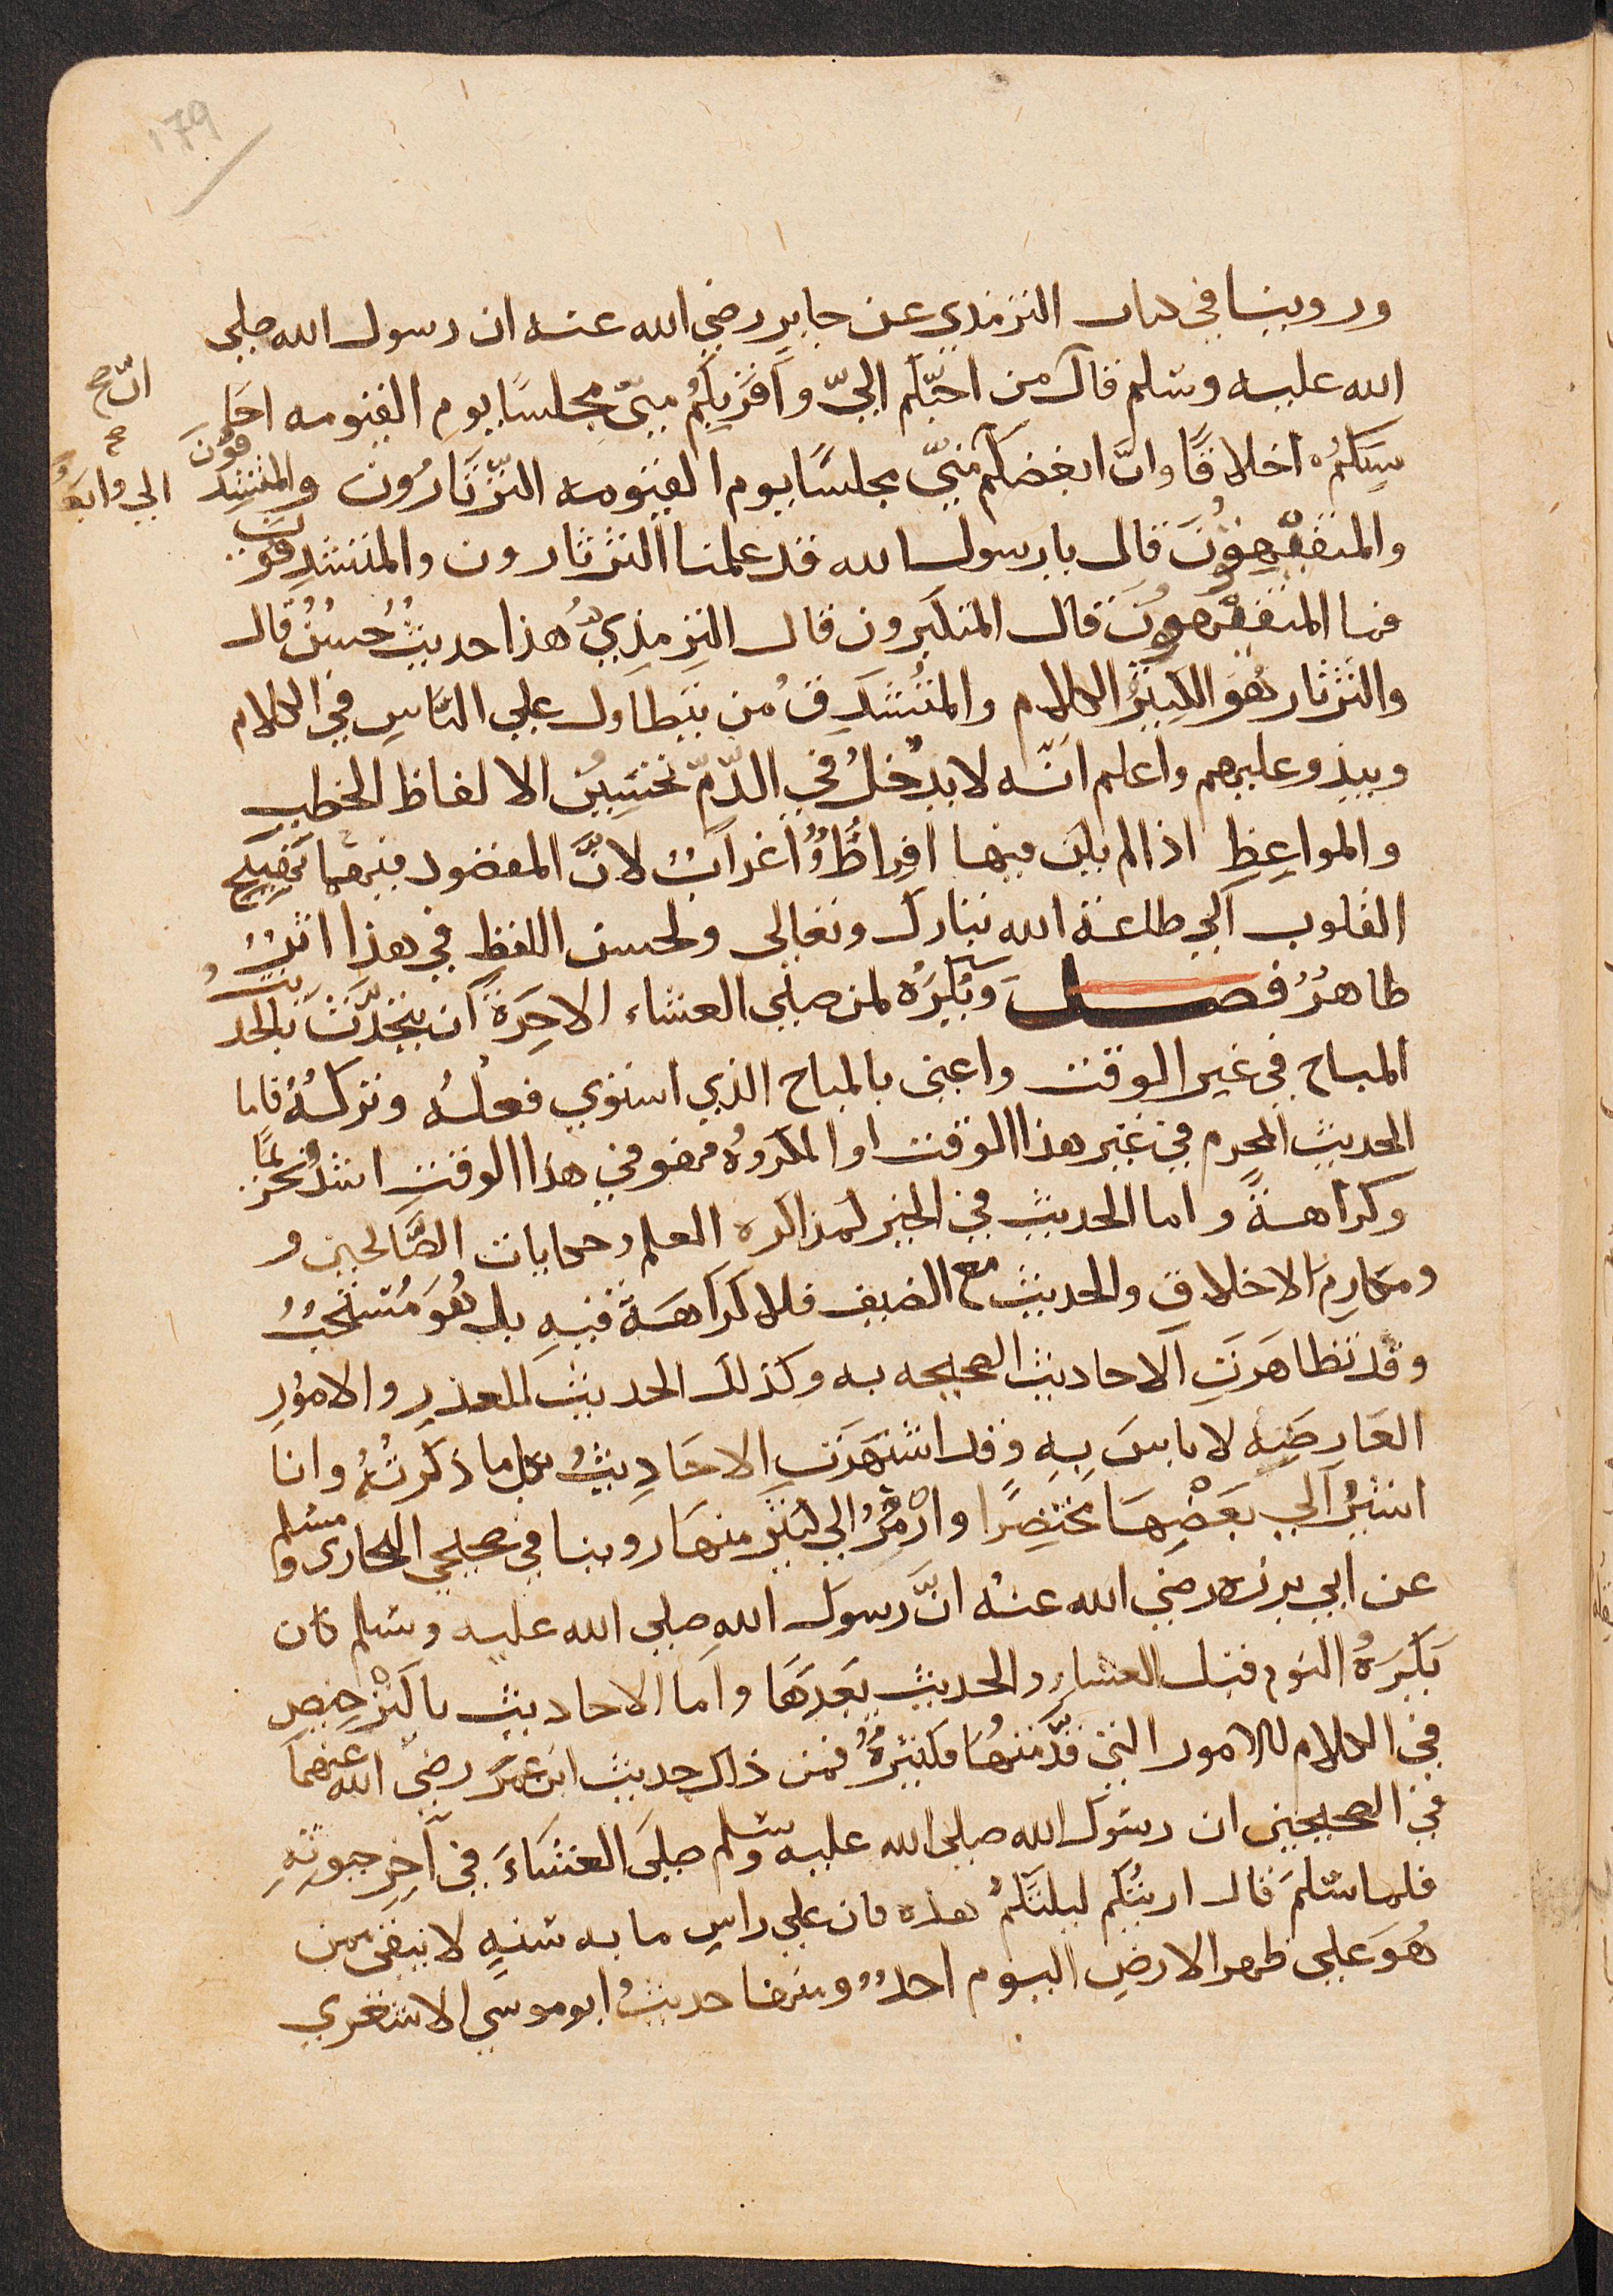 179
وروينا في كتاب الترمذي عن جابر رضي الله عنه ان رسول الله صلي
الله عليه وسلم قال من احبّكم اليّ وَاَقرَبِكُم مِنّي مجلسًا يوم القيومه احَا
انّ صح
سِنكُم اخلاقًا وانّ ابغضكم منيّ مجلسًا يوم القيومه الثّرثَارُون والمتشدِقُونَ
صح الي وابعَدُ
والمتفيهِقُونَ قال يارسول الله قد علمنا الثرثارون والمتشدِقُونَ
فما المتفيهِقُونَ قال المتكبرون قال الترمذي هذا حديثٌ حُسنٌ قال
والثرثار هُوَ الكثيرُ الكلام والمتُشَدِقُ مُن يتطاول علي النّاسِ في الكلام
ويبذو عليهم واعلم انّه لا يدخلُ في الذّمّ تحسِينُ الالفاظ الخطب
والمواعِظِ اذا لم يكن فيها اِفراطٌ وُاغرابٌ لانَّ المقصود منهما تهييج
القلوب الي طاعة الله تبارك وتعالى ولحسن اللفظِ في هذا اثرٌ
ظاهرٌ فصل وَيُكرَهُ لمن صلّي العشاء الاخِرَة ان يتحدّثَ بالحديثُ
المباح في غير الوقت واعني بالمباح الذي استوي فعلُهُ وتركُهُ فاما
الحديث المحرم في غير هذا الوقت او المكروهُ فهو في هذا الوقتِ اشدُّ تحريمًا
وكراهةً واما الحديث في الخير لمذاكره العلم وحكايات الصَّالحين و
ومكارِم الاخلاقِ والحديث مع الضيف فلا كراهَةَ فيهِ بل هُوَ مُستحَبٌ
وقد تظاهَرَتِ الاحاديث الصحيحه به وكذلك الحديث للعذرِ والامُورِ
العَارضِيهِ لا باسَ بِهِ وقد اشتهَرَتِ الاحَادِيثُ بكل ما ذكرتُهُ وانا
اشيرُ الي بَعْضِهَا مختصِرًا وارْمُزُ الي كثيرٍ منهَا روينا في صحيحي البخاري ومسلم
عن ابي برزه رضي الله عنهُ انَّ رسول اللهِ صلي الله عليه وسلم كان
يَكرَهُ النوم قبل العشاءِ والحديث بَعدَهَا واما الاحاديث بالترْخيصِ
في الكلام للامور التي قدّمتهُا فكثيرةٌ فمن ذلك حديث ابن عمَرَ رضيّ الله عنهمَا
في الصحيحين ان رسول الله صلي الله عليه وسلم صلَي العشَاءَ في آخِرِ حيوتِهِ
فلما سَلمَ قال ارءيتُكم ليلتَكم هذه فان علي راسِ مايه سنةٍ لا يبقي ممن
هُوَ علي ظهر الارضِ اليوم احدٌ ومنها حديثُ ابو موسي الاشعري